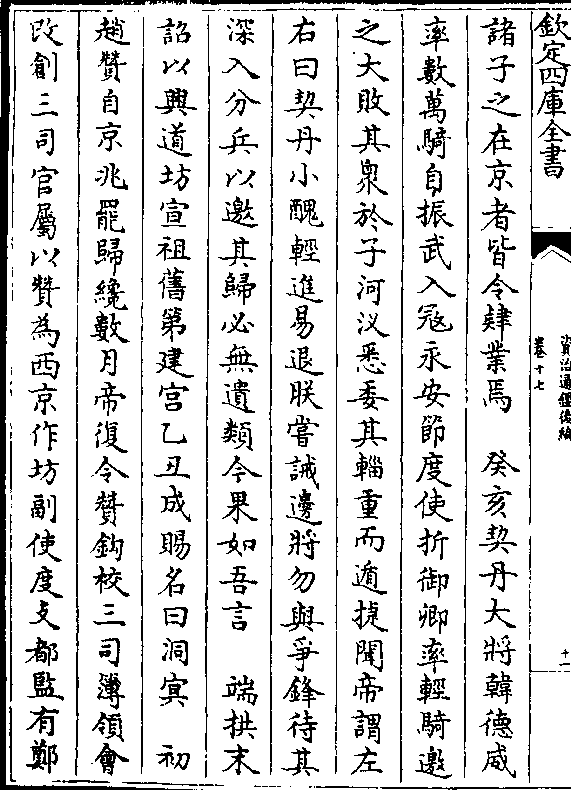 欽定四庫全書
資治通鑑後編
卷十七
十一
諸子之在京者皆令肄業焉　癸亥契丹大將韓德威
率數萬騎自振武入冦永安節度使折御卿率輕騎邀
之大敗其衆於子河汊悉委其輜重而遁捷聞帝謂左
右曰契丹小醜輕進易退朕嘗誡邊將勿與爭鋒待其
深入分兵以邀其歸必無遺類今果如吾言　端拱末
詔以興道坊宣祖舊第建宫乙丑成賜名曰洞寘　初
趙贊自京兆罷歸纔數月帝復令贊鈎校三司簿領會
改創三司官屬以贊為西京作坊副使度支都監有鄭